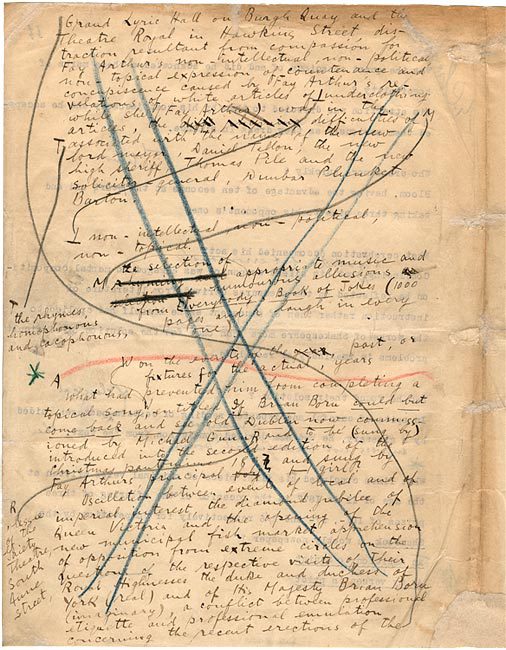 Grand Lyric Hall on Burgh Quay and the
Theatre Royal in Hawkins Street, dis-
traction resultant from compassion for
Fay Arthur's non-intellectual, non-political
non-topical expression of countenance and
concupiscence caused by Fay Arthur's re-
velations of white articles of underclothing
while she (Fay Arthur) was in the
articles, the difficulties of
associated with the names of the new
lord mayor, Daniel Tallon, the new
high sheriff, Thomas Pile and the new
solicitor general, Dunbar Plunket
Barton.
T
M
I non-intellectual, non-political,
non-topical,
M the selection of appropriate music and
humorous allusions
from Everybody's Book of Jokes (1000
pages and a laugh in every
one)
T the rhymes
homophonous
and cacophonous,
W on the events of the past, or
fixtures for the actual, years
A What had prevented him from completing a
topical song entitled If Brian Boru could but
come back and see old Dublin now commiss-
ioned by Michael Gunn R and to be (sung by)
introduced into the second edition of the
Christmas pantomime and sung by
Fay Arthur, principal girl?
Oscillation between events of local and of
imperial interest, the diamond jubilee of
Queen Victoria and the opening of the
new municipal fish market, apprehension
of opposition from extreme circles on the
questions of the respective visits of their
Royal Highnesses the duke and duchess of
York (real) and of His Majesty Brian Boru
(imaginary), a conflict between professional
etiquette and professional emulation
concerning the recent erections of the
R
of the
Gaiety
Theatre,
South
King
street,